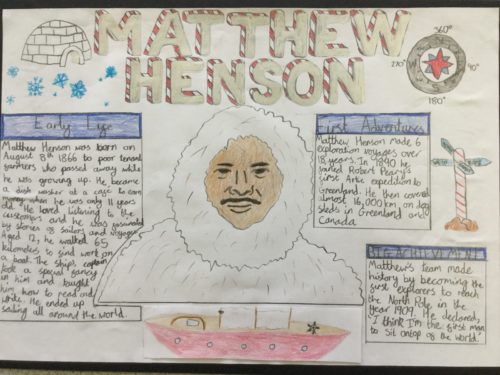 MATTHEW
HENSON
360°
270° W
90°
180°
Early Life
Matthew Henson was born on
August 8th 1866 to poor tenant
farmers who passed away while
he was growing up. He became
a dish washer at a cafe to earn
when he was only 11 years
old. He loved listening to the
customers and he was fascinated
by stories of sailors and voyages.
Aged 12, he walked 65
kilometres to find work on
a boat. The ship's captain
took a special fancy
in him and taught
him how to read and
write. He ended up
sailing all around the world.
First Adventures
Matthew Henson made 6
exploration voyages over
18 years. In 1890 he
joined Robert Peary's
first Artic expedition to
Greenland. He then covered
almost 16,000 km on dog
sleds in Greenland and
Canada
BIG ACHIEVEMENT
Matthew's team made
history by becoming the
first explorers to reach
the North Pole in the
year 1909. He declared,
'I think I'm the first man
to sit ontop of the world.'